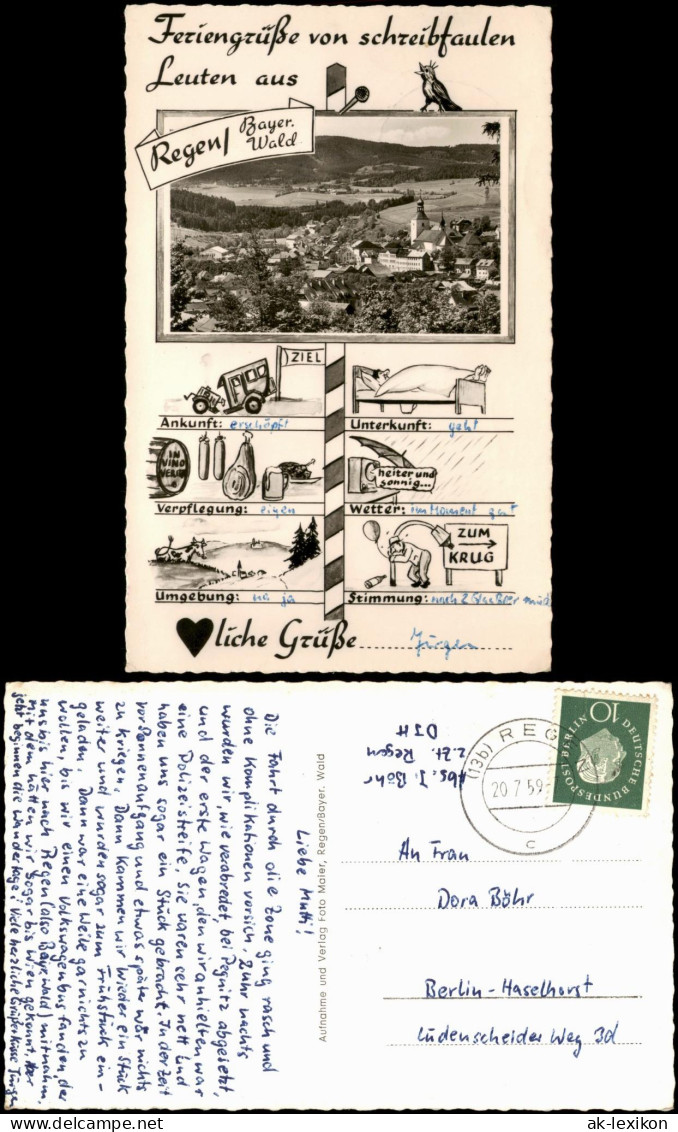 Feriengrüße von schreibfaulen
Leuten aus
Regen/ Bayer.
Wald
ZIEL
Ankunft: erschöpft
Unterkunft: geht
IN
VINO
VERITAS
heiter und
sonnig...
Verpflegung: eigen
Wetter: im Moment gut
ZUM
KRUG
Umgebung: na ja
Stimmung: nach 2 Glas Bier müde
liche Grüße Jürgen
Liebe Mutti!
Die Fahrt durch die Zone ging rasch und
ohne Komplikationen vor sich. 2 Uhr nachts
wurden wir, wie verabredet, bei Pegnitz abgesetzt,
und der erste Wagen, den wir anhielten war
eine Polizeistreife. Sie waren sehr nett und
haben uns sogar ein Stück gebracht. In der Zeit
vor Sonnenaufgang und etwas später war nichts
zu kriegen. Dann kammen wir wieder ein Stück
weiter und wurden sogar zum Frühstück ein-
geladen. Dann war eine Weile gar nichts zu
wollen, bis wir einen Volkswagenbus fanden, der
uns bis hier nach Regen (also Bayr Wald) mitnahm.
Mit dem hätten wir sogar bis Wien gekonnt. Aber
jetzt beginnen die Wandertage! Viele herzliche Grüße Jürgen
Aufnahme und Verlag Foto Maier, Regen/Bayer. Wald
Abs. J. Böhr
z.Zt. Regen
DJH
(13b) REGEN
20.7.59
c
10
DEUTSCHE BUNDESPOST BERLIN
An Frau
Dora Böhr
Berlin-Haselhorst
Lüdenscheider Weg 3d
ak-lexikon